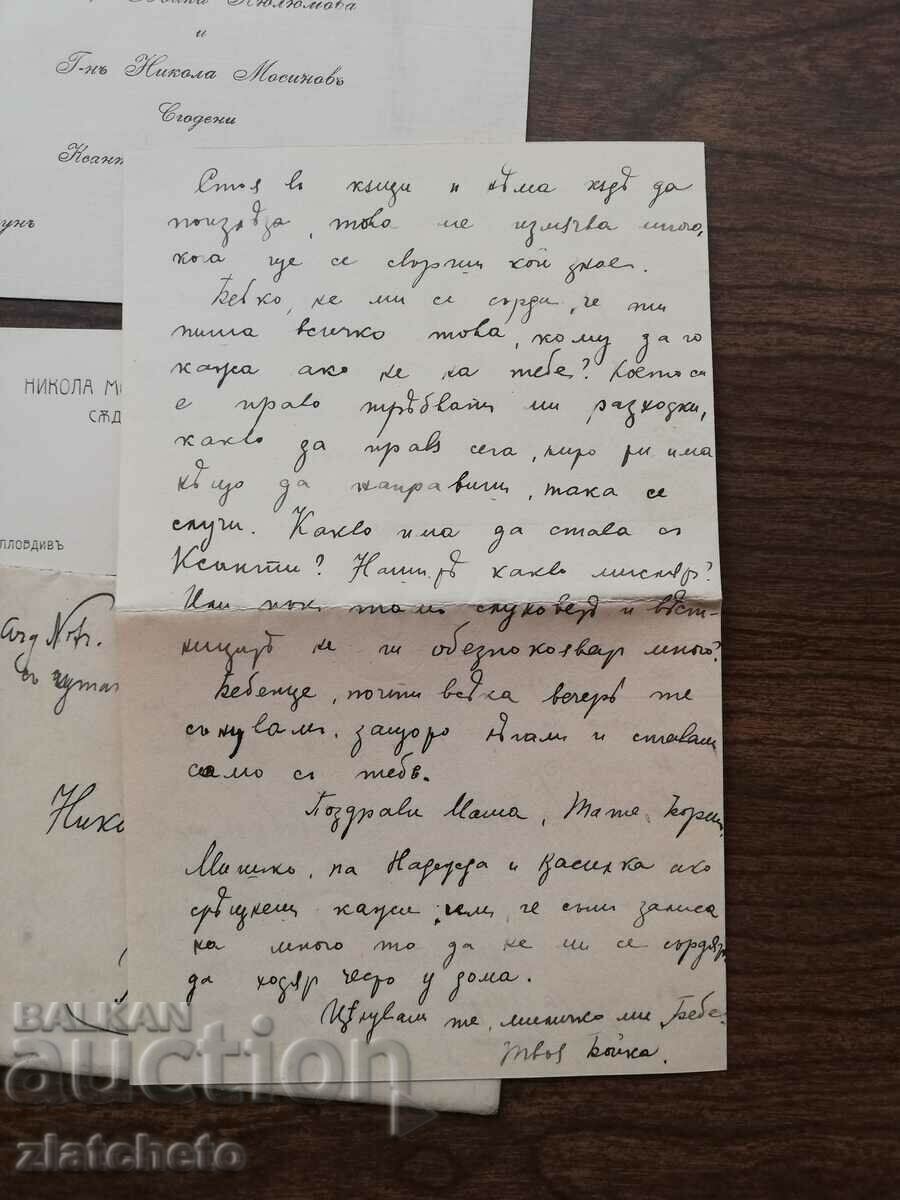 Г-нъ Никола Мосиновъ
и
Сгодени
Ксант
унъ
НИКОЛА М
СѪД
ПЛОВДИВЪ
Нико
Стоя въ кѫщи и нѣма кѫдѣ да
поизлѣза, това ме измѫчва много,
кога ще се свърши кой знае.
Бебко, не ми се сърди, че ти
пиша всичко това, кому да го
кажа ако не на тебе?
е право трѣбватъ ми разходки,
какво да правя сега, има
нѣщо да направишъ, така се
случи. Какво има да става съ
Ксанти? Нашитѣ какво мислятъ?
Или пъкъ тамъ слуховетѣ и вѣст-
ницитѣ не ги обезпокояватъ много?
Бебенце, почти всѣка вечеръ те
сънувамъ, защото лѣгамъ и ставамъ
само съ тебе.
Поздрави Мама, Тате,
Мишко, па Надежда и Василка ако
срѣщнешъ кажи имъ, че съмъ записа
на много то да не ми се сърдятъ
да ходятъ често у дома.
Цѣлувамъ те, миличко ми Бебе
твоя Бойка.
BALKAN
Auction
zlatcheto